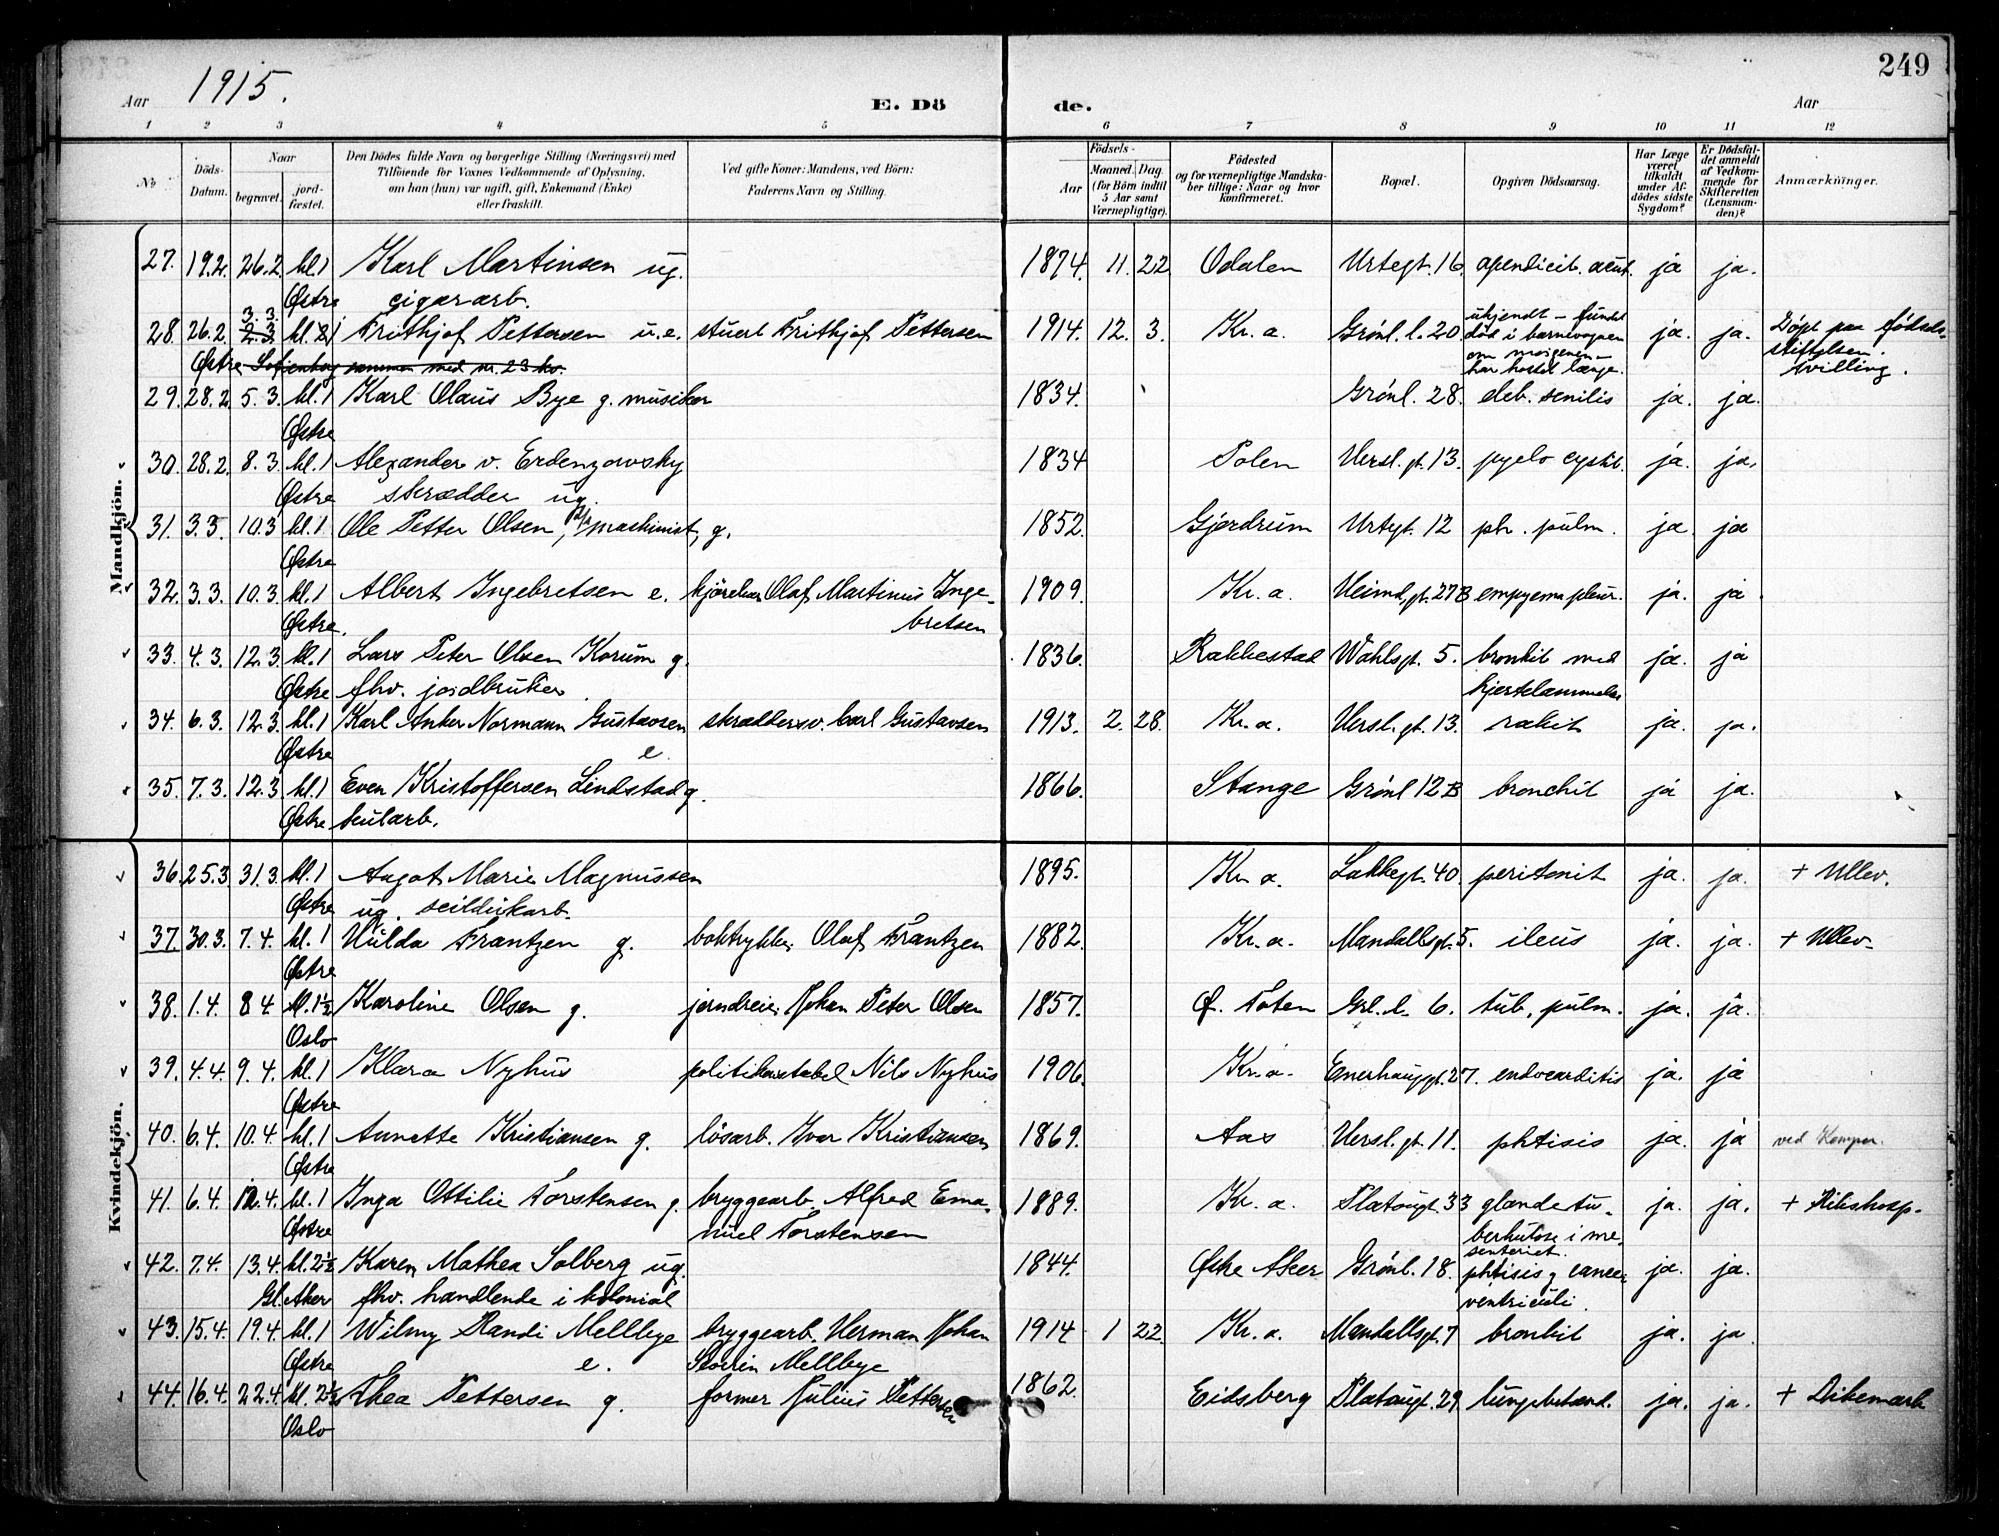 1915.
249
Aar
E. Dö
de.
Aar
1 2 3 4 5 6 7 8 9 10 11 12
No
Döds-Datum.
Naar
begravet.
jord-fæstet.
Den Dödes fulde Navn og borgerlige Stilling (Næringsvei) med
Tilföiende for Voxnes Vedkommende af Oplysning,
om han (hun) var ugift, gift, Enkemand (Enke)
eller fraskilt.
Ved gifte Koner: Mandens, ved Börn:
Faderens Navn og Stilling.
Födsels-
Aar
Maaned. Dag.
(for Börn indtil
5 Aar samt
Værnepligtige).
Födested
og for værnepligtige Mandska-
ber tillige: Naar og hvor
konfirmeret.
Bopæl.
Opgiven Dödsaarsag.
Har Læge
været
tilkaldt
under Af-
dödes sidste
Sygdom?
Er Dödsfal-
det anmeldt
af Vedkom-
mende for
Skifteretten
(Lensman-
den)?
Anmærkninger.
Mandkjön.
27. 19.2. 26.2 kl.1 Karl Martinsen ug. 1874. 11. 22 Odalen Urtegt. 16 apendicit. acut. ja ja.
Østre cigararb.
3.3.
28. 26.2. 2.3. kl. 1 Frithjof Pettersen u.e. stuert Frithjof Pettersen 1914. 12. 3. Kr.a. Grønl. l. 20. ukjendt – fundet død i barnevognen om morgenen – har hostet længe. ja. ja. Döpt paa Fødsels-stiftelsen. tvilling.
Østre Sofienberg sammen med nr. 23
29. 28.2. 5.3. kl.1 Karl Olaus Bye g. musiker 1834. Grønl. 28. deb. senilis ja. ja.
Østre
30. 28.2. 8.3. kl.1 Alexander v. Erdenzowsky 1834 Polen Hersl. gt. 13. pyelo cystit. ja. ja.
Østre skrædder ug.
31. 3.3. 10.3 kl.1. Ole Petter Olsen, maskinist, g. 1852. Gjerdrum Urtegt. 12 pht. pulm. ja ja
Østre
32. 3.3. 10.3. kl.1 Albert Ingebretsen e. kjørekar Olaf Martinus Inge- 1909. Kr.a. Heimd. gt. 27B empyema pleur. ja. ja
Østre. bretsen
33. 4.3. 12.3. kl.1 Lars Peter Olsen Korum g. 1836. Rakkestad Wahlsgt. 5. bronkit med ja. ja
Østre fhv. jordbruker hjertelammelse
34. 6.3. 12.3. kl.1 Karl Anker Normann Gustavsen skræddersv. Carl Gustavsen 1913. 2. 28. Kr.a. Hersl. gt. 13. rakit ja. ja.
Østre e.
35. 7.3. 12.3 kl.1 Even Kristoffersen Lindstad g. 1866. Stange Grønl 12B bronchit ja ja.
Østre kularb.
Kvindekjön.
36. 25.3 31.3. kl.1 Aagot Marie Magnussen 1895. Kr.a. Lakkegt. 40. peritonit ja. ja. + Ullev.
Østre ug. seildukarb.
37. 30.3. 7.4. kl.1 Hulda Frantzen g. boktrykker Olaf Frantzen 1882. Kr.a. Mandallsgt. 5. ileus ja. ja. + Ullev.
Østre
38. 1.4. 8.4. kl. 1½ Karoline Olsen g. jerndreier Johan Peter Olsen 1857. Ø. Toten Grl. l. 6. tub. pulm. ja. ja.
Oslo
39. 4.4. 9.4. kl.1 Klara Nyhus politikonstabel Nils Nyhus 1906. Kr.a. Enerhauggt. 27. endocarditis ja. ja
Østre
40. 6.4. 10.4. kl.1 Annette Kristiansen g. løsarb. Ivar Kristiansen 1869. Aas Hersl. gt. 11. phtisis ja. ja ved
Østre
41. 6.4. 12.4. kl.1 Inga Ottilie Torstensen g. bryggearb. Alfred Ema- 1889. Kr.a. Platougt. 33 glandetu- ja. ja. + Rikshosp.
Østre nuel Torstensen berkulose i me-senteriet.
42. 7.4. 13.4. kl. 2½ Karen Mathea Solberg ug. 1844. Østre Aker Grønl. 18. phtisis, cancer ja. ja.
Gl. Aker fhv. handlende i kolonial ventriculi.
43. 15.4. 19.4. kl.1 Wilmy Randi Mellbye bryggearb. Herman Johan 1914 1 22. Kr.a. Mandallsgt. 7 bronkit ja. ja.
Østre e. Mellbye
44. 16.4. 22.4. kl. 2½ Thea Pettersen g. former Julius Pettersen 1862. Eidsberg Platougt. 29. lungebetænd. ja. ja. + Dikemark
Oslo